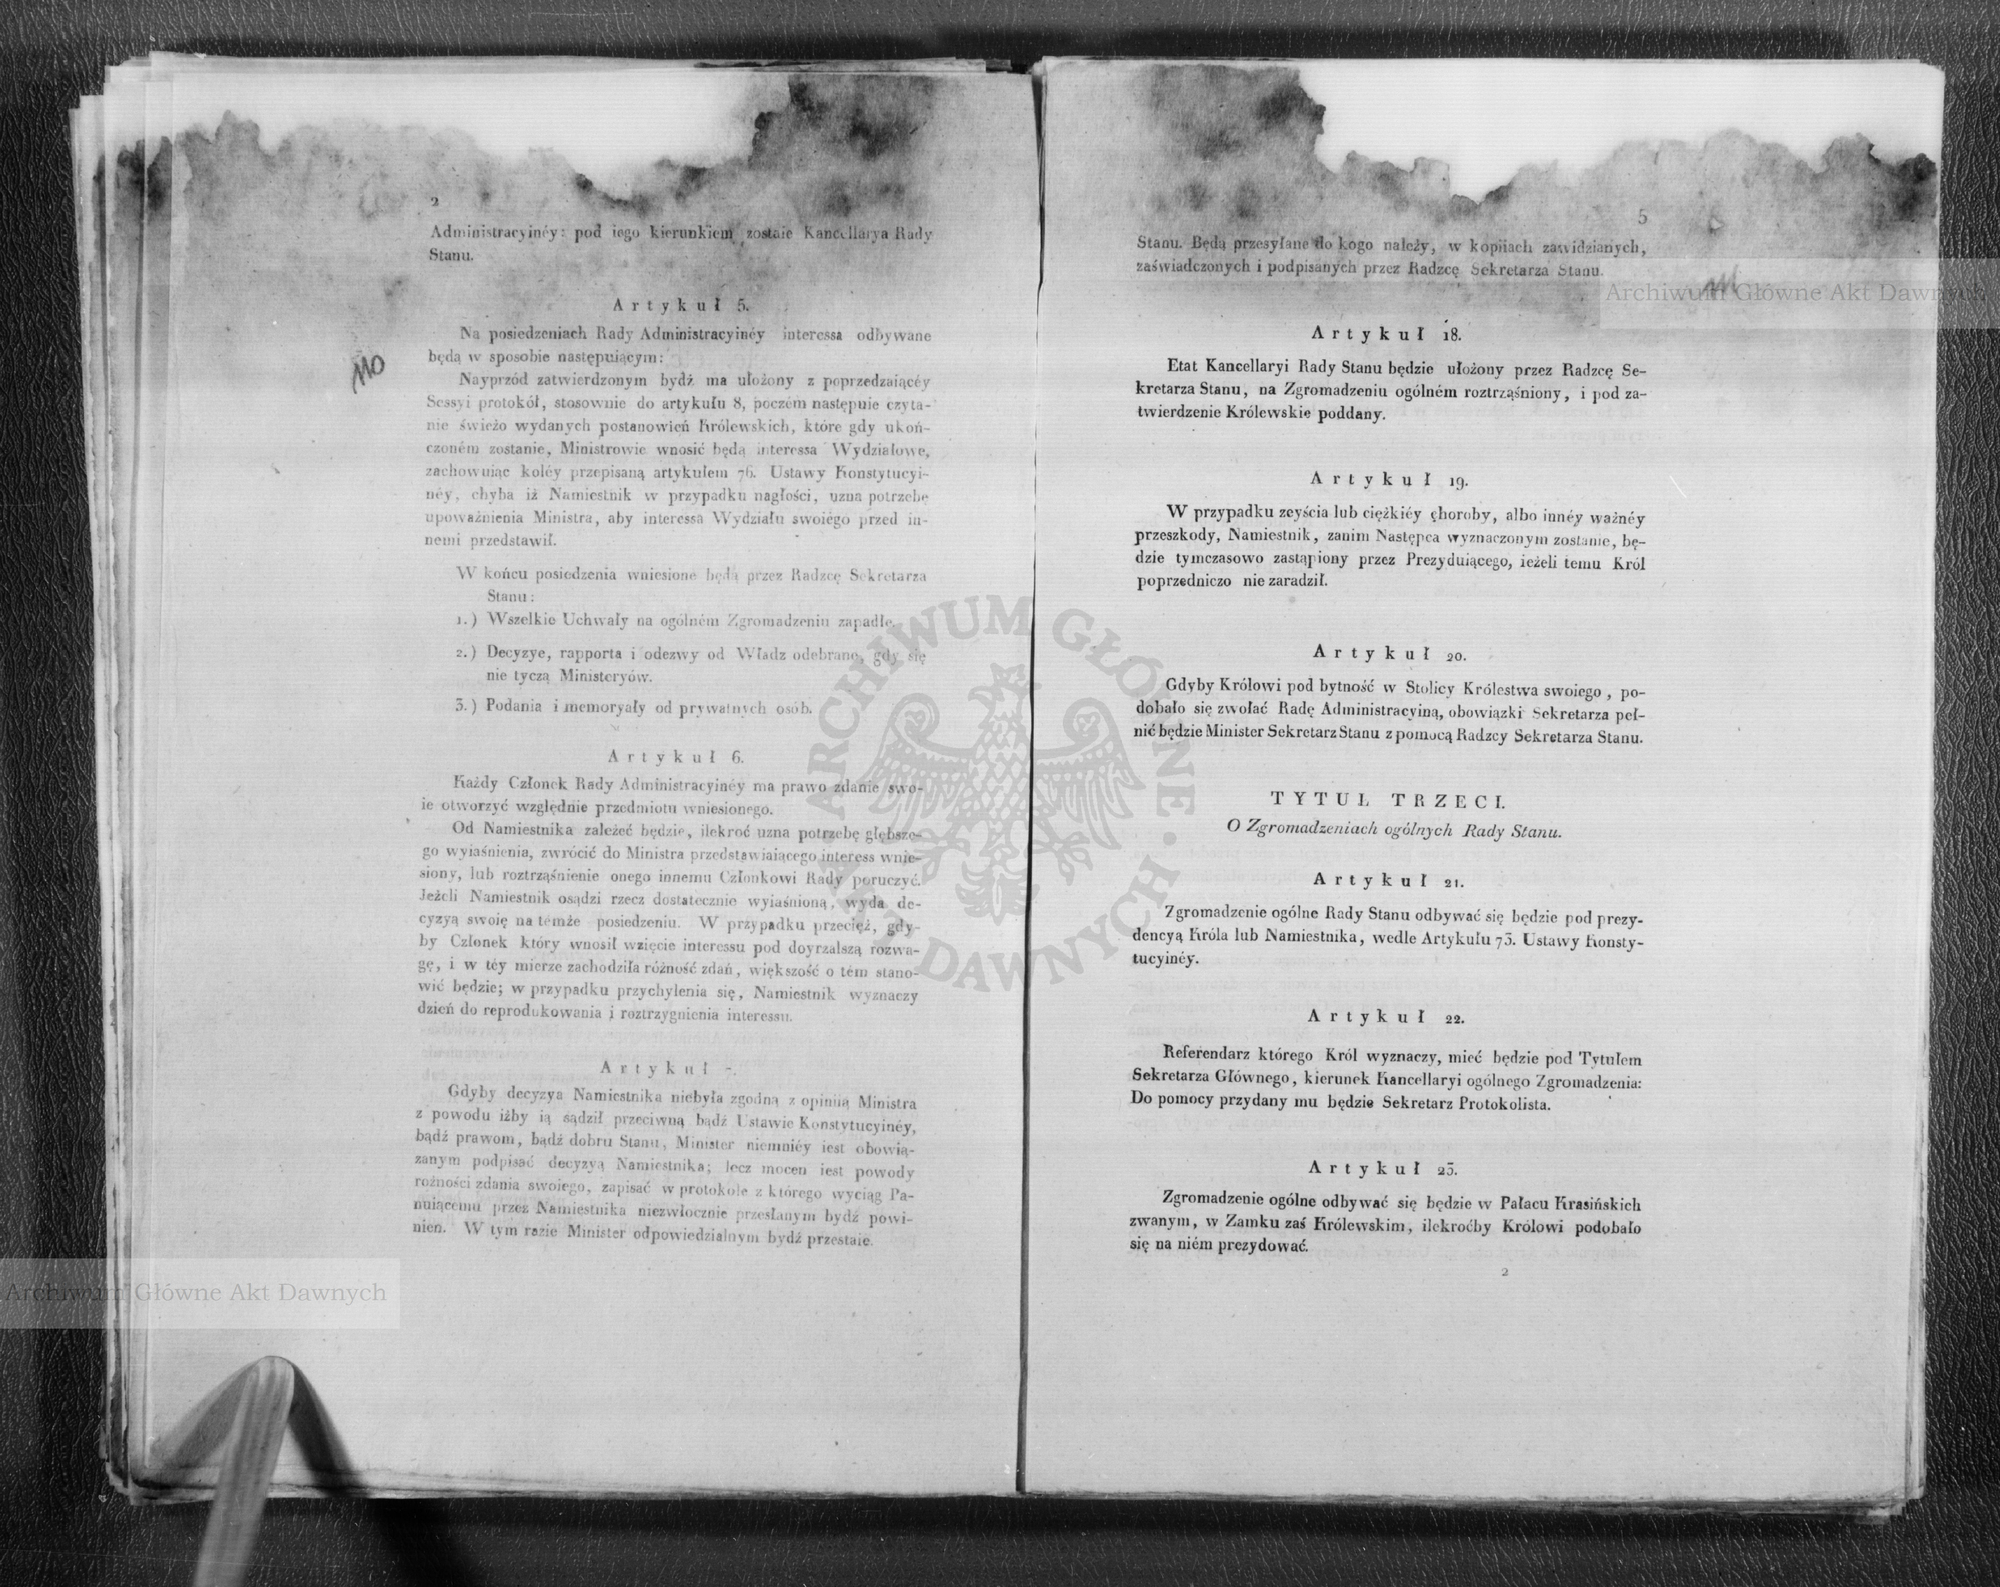 2
Administracyinéy: pod iego kierunkiem zostaie Kancellarya Rady
Stanu.
Artykuł 5.
Na posiedzeniach Rady Administracyinéy interessa odbywane
będą w sposobie następuiącym:
Nayprzód zatwierdzonym bydź ma ułożony z poprzedzaiącéy
Sessyi protokół, stosownie do artykułu 8, poczém następuie czyta-
nie świeżo wydanych postanowień Królewskich, które gdy ukoń-
czoném zostanie, Ministrowie wnosić będą interessa Wydziałowe,
zachowuiąc koléy przepisaną artykułem 76. Ustawy Konstytucyi-
néy, chyba iż Namiestnik w przypadku nagłości, uzna potrzebę
upoważnienia Ministra, aby interessa Wydziału swoiégo przed in-
nemi przedstawił.
W końcu posiedzenia wniesione będą przez Radzcę Sekretarza
Stanu:
1.) Wszelkie Uchwały na ogólném Zgromadzeniu zapadłe.
2.) Decyzye, rapporta i odezwy od Władz odebrane, gdy się
nie tyczą Ministeryów.
3.) Podania i memoryały od prywatnych osób.
Artykuł 6.
Każdy Członek Rady Administracyinéy ma prawo zdanie swo-
ie otworzyć względnie przedmiotu wniesionego.
Od Namiestnika zależeć będzie, ilekroć uzna potrzebę głębsze-
go wyiaśnienia, zwrócić do Ministra przedstawiaiącego interess wnie-
siony, lub roztrząśnienie onego innemu Członkowi Rady poruczyć.
Jeżeli Namiestnik osądzi rzecz dostatecznie wyiaśnioną, wyda de-
cyzyą swoię na témże posiedzeniu. W przypadku przecięż, gdy-
by Członek który wnosił wzięcie interessu pod doyrzalszą rozwa-
gę, i w téy mierze zachodziła różność zdań, większość o tém stano-
wić będzie; w przypadku przychylenia się, Namiestnik wyznaczy
dzień do reprodukowania i roztrzygnienia interessu.
Artykuł 7.
Gdyby decyzya Namiestnika niebyła zgodną z opiniią Ministra
z powodu iżby ią sądził przeciwną bądź Ustawie Konstytucyinéy,
bądź prawom, bądź dobru Stanu, Minister niemniéy iest obowią-
zanym podpisać decyzyą Namiestnika; lecz mocen iest powody
rożności zdania swoiego, zapisać w protokole z którego wyciąg Pa-
nuiącemu przez Namiestnika niezwłocznie przesłanym bydź powi-
nien. W tym razie Minister odpowiedzialnym bydź przestaie.
110
5
Stanu. Będą przesyłane do kogo należy, w kopiiach zawidzianych,
zaświadczonych i podpisanych przez Radzcę Sekretarza Stanu.
Artykuł 18.
Etat Kancellaryi Rady Stanu będzie ułożony przez Radzcę Se-
kretarza Stanu, na Zgromadzeniu ogólném roztrząśniony, i pod za-
twierdzenie Królewskie poddany.
Artykuł 19.
W przypadku zeyścia lub ciężkiéy choroby, albo innéy ważnéy
przeszkody, Namiestnik, zanim Następca wyznaczonym zostanie, bę-
dzie tymczasowo zastąpiony przez Prezyduiącego, ieżeli temu Król
poprzedniczo nie zaradził.
Artykuł 20.
Gdyby Królowi pod bytność w Stolicy Królestwa swoiego, po-
dobało się zwołać Radę Administracyiną, obowiązki Sekretarza peł-
nić będzie Minister Sekretarz Stanu z pomocą Radzcy Sekretarza Stanu.
TYTUŁ TRZECI.
O Zgromadzeniach ogólnych Rady Stanu.
Artykuł 21.
Zgromadzenie ogólne Rady Stanu odbywać się będzie pod prezy-
dencyą Króla lub Namiestnika, wedle Artykułu 73. Ustawy Konsty-
tucyinéy.
Artykuł 22.
Referendarz którego Król wyznaczy, mieć będzie pod Tytułem
Sekretarza Głównego, kierunek Kancellaryi ogólnego Zgromadzenia:
Do pomocy przydany mu będzie Sekretarz Protokolista.
Artykuł 23.
Zgromadzenie ogólne odbywać się będzie w Pałacu Krasińskich
zwanym, w Zamku zaś Królewskim, ilekroćby Królowi podobało
się na niém prezydować.
2
Archiwum Główne Akt Dawnych
Archiwum Główne Akt Dawnych
ARCHIWUM GŁÓWNE · AKT DAWNYCH ·